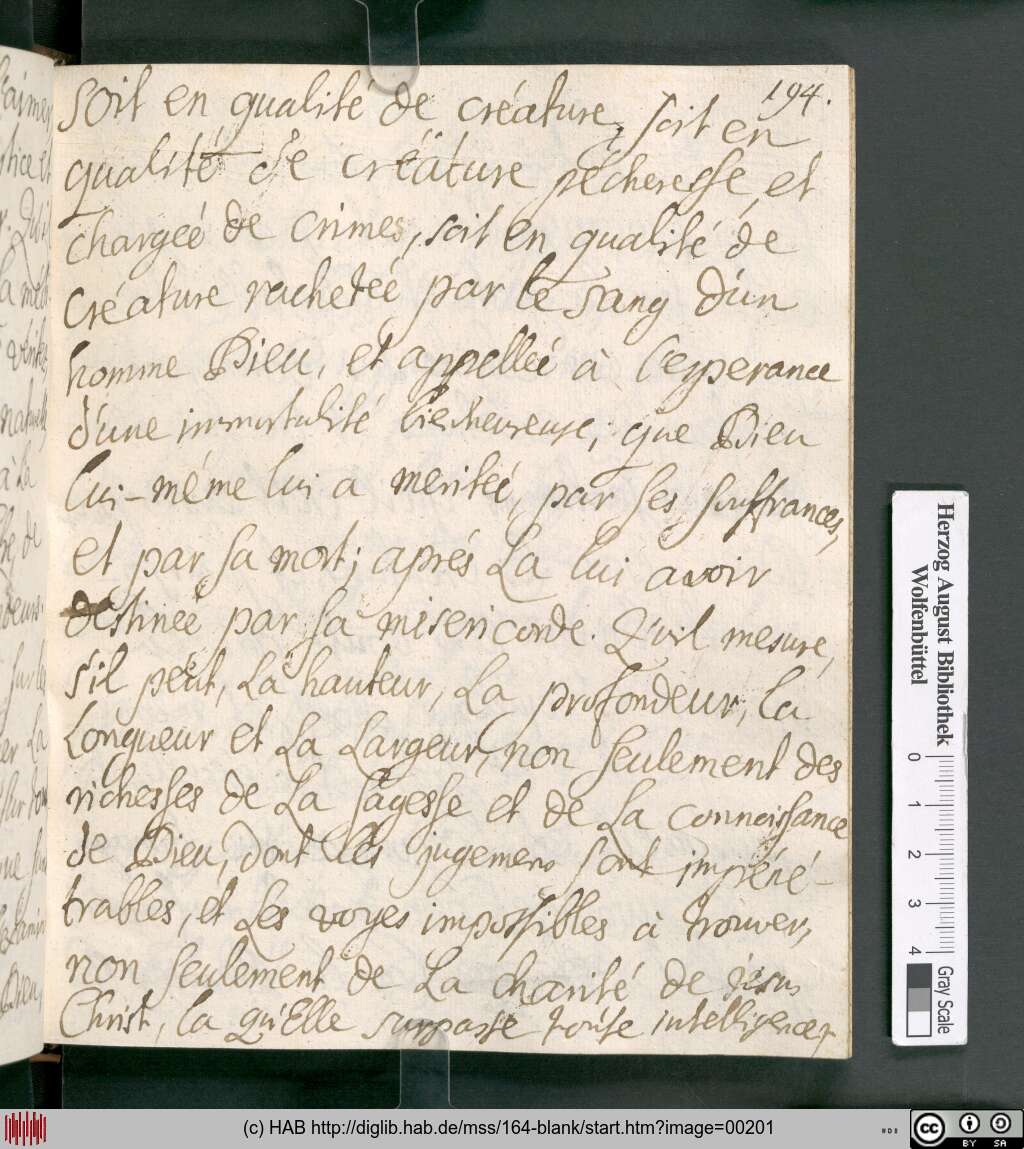 194.
soit en qualité de créature, soit en
qualité de créature pécheresse, et
chargeé de crimes, soit en qualité de
créature racheteé par le sang d'un
homme Dieu, et appelleé à l'esperance
d'une immortalité bienheureuse, que Dieu
lui-même lui a meriteé, par ses souffrances,
et par sa mort; aprés La lui avoir
destineé par sa misericorde. Qu'il mesure,
s'il peut, La hauteur, La profondeur, la
Longueur et La Largeur, non seulement des
richesses de La sagesse et de La connoissance
de Dieu, dont Les jugemens sont impéné-
trables, et Les voyes impossibles à trouver,
non seulement de La charité de jesus
Christ, la qu'Elle surpasse toute intelligence,
Herzog August Bibliothek
Wolfenbüttel
0 1 2 3 4
Gray Scale
(c) HAB http://diglib.hab.de/mss/164-blank/start.htm?image=00201
cc BY SA